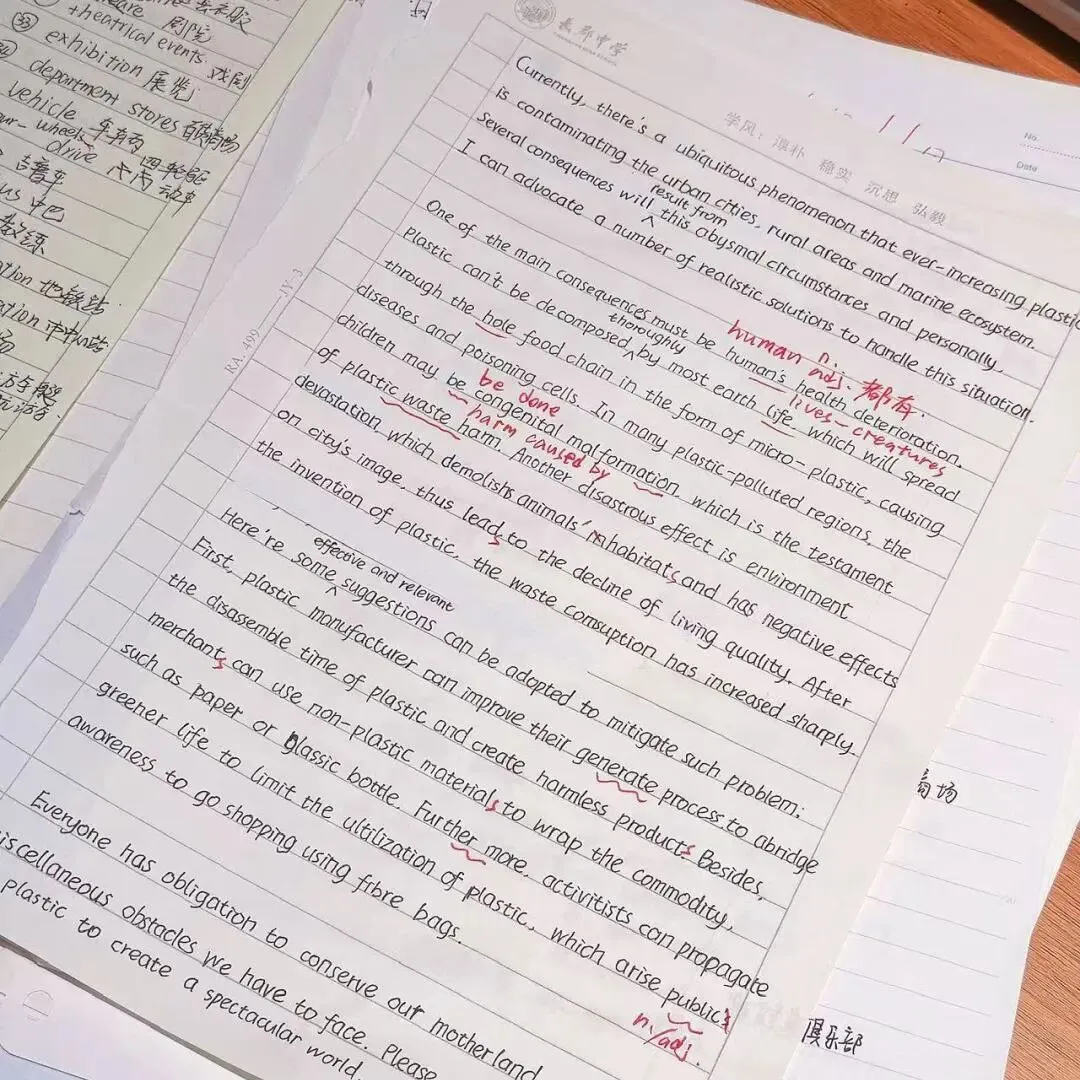 theatrical events. 戏剧
剧院
㉝ exhibition 展览
department stores 百货商场
vehicle 车辆
four-wheel drive 四轮驱动车
吉普车
中巴
教练
地铁站
长郡中学
学风： 淳朴 稳实 沉思 弘毅
No.
Date
RA. 499 JY-3
Currently, there's a ubiquitous phenomenon that ever-increasing plastic
is contaminating the urban cities, rural areas and marine ecosystem.
Several consequences will result from this abysmal circumstances and personally,
I can advocate a number of realistic solutions to handle this situation.
human n. adj. 都有.
One of the main consequences must be human's health deterioration.
Plastic can't be decomposed thoroughly by most earth life, which will spread
lives-creatures
through the hole food chain in the form of micro-plastic, causing
diseases and poisoning cells. In many plastic-polluted regions, the
be done
children may be congenital malformation, which is the testament
harm caused by
of plastic waste harm. Another disastrous effect is environment
devastation which demolishs animals' habitats and has negative effects
on city's image, thus leads to the decline of living quality. After
the invention of plastic, the waste comsuption has increased sharply.
Here're some effective and relevant suggestions can be adopted to mitigate such problem:
First, plastic manufacturer can improve their generate process to abridge
the disassemble time of plastic and create harmless products. Besides,
merchants can use non-plastic materials to wrap the commodity,
such as paper or glassic bottle. Further more, activitists can propagate
greener life to limit the ultilization of plastic, which arise public's
awareness to go shopping using fibre bags.
n./adj.
Everyone has obligation to conserve out motherland
iscellaneous obstacles we have to face. Please
plastic to create a spectacular world.
商场
俱乐部